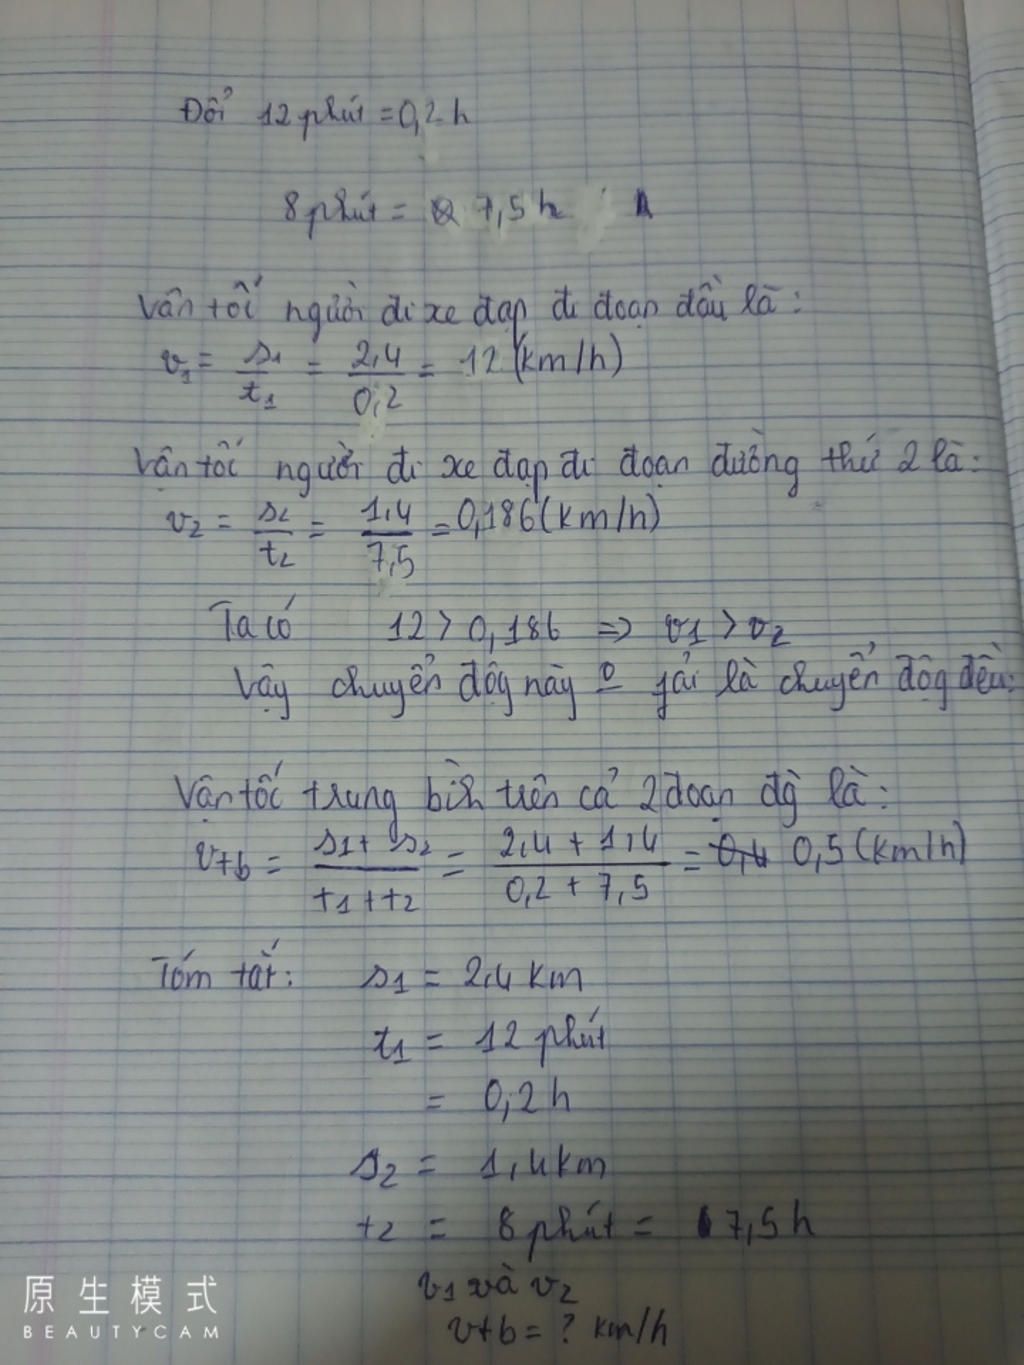 Đổi 12 phút = 0,2 h
8 phút = 7,5 h
Vận tốc người đi xe đạp đi đoạn đầu là:
v1 = s1/t1 = 2,4/0,2 = 12 (km/h)
Vận tốc người đi xe đạp đi đoạn đường thứ 2 là:
v2 = s2/t2 = 1,4/7,5 = 0,186 (km/h)
Ta có 12 > 0,186 => v1 > v2
Vậy chuyển độg này o fải là chuyển độg đều.
Vận tốc trung bìh trên cả 2 đoạn đg̀ là:
vtb = s1 + s2/t1 + t2 = 2,4 + 1,4/0,2 + 7,5 = 0,4 0,5 (km/h)
Tóm tắt: s1 = 2,4 km
t1 = 12 phút
= 0,2 h
s2 = 1,4 km
t2 = 8 phút = 7,5 h
v1 và v2
vtb = ? km/h
原生模式
BEAUTYCAM